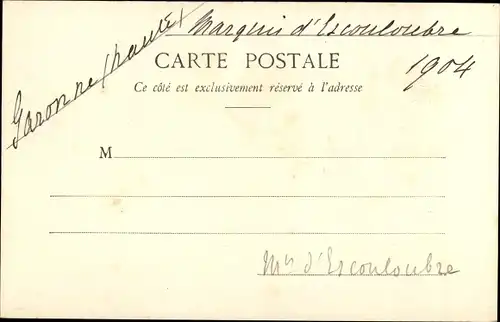 Marquis d'Escouloubre
Garonne (haute)
CARTE POSTALE
1904
Ce côté est exclusivement réservé à l'adresse
M
Mis d'Escouloubre